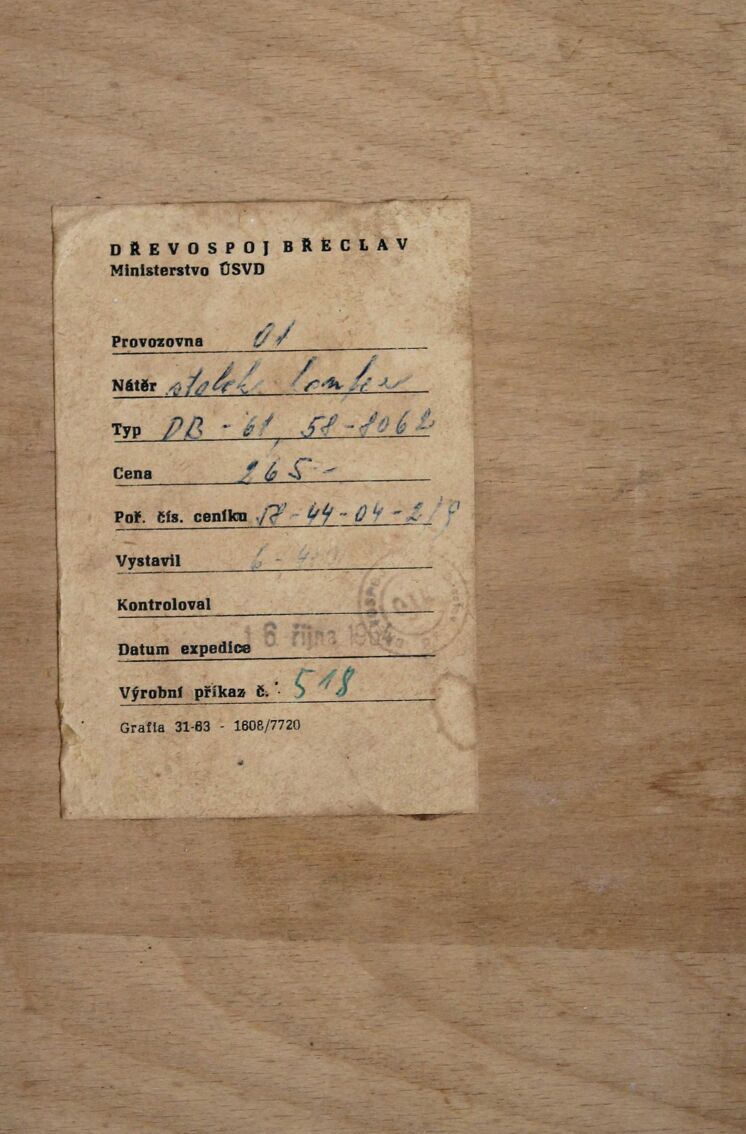 DŘEVOSPOJ BŘECLAV
Ministerstvo ÚSVD
Provozovna 01
Nátěr stolek
Typ DB - 61, 58-8062
Cena 265 -
Poř. čís. ceníku 58-44-04-2
Vystavil
Kontroloval
16. října 1964
Datum expedice
Výrobní příkaz č. 518
Grafia 31-63 - 1608/7720